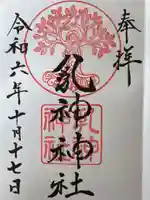 奉拝
乳神神社
令和六年十月十七日